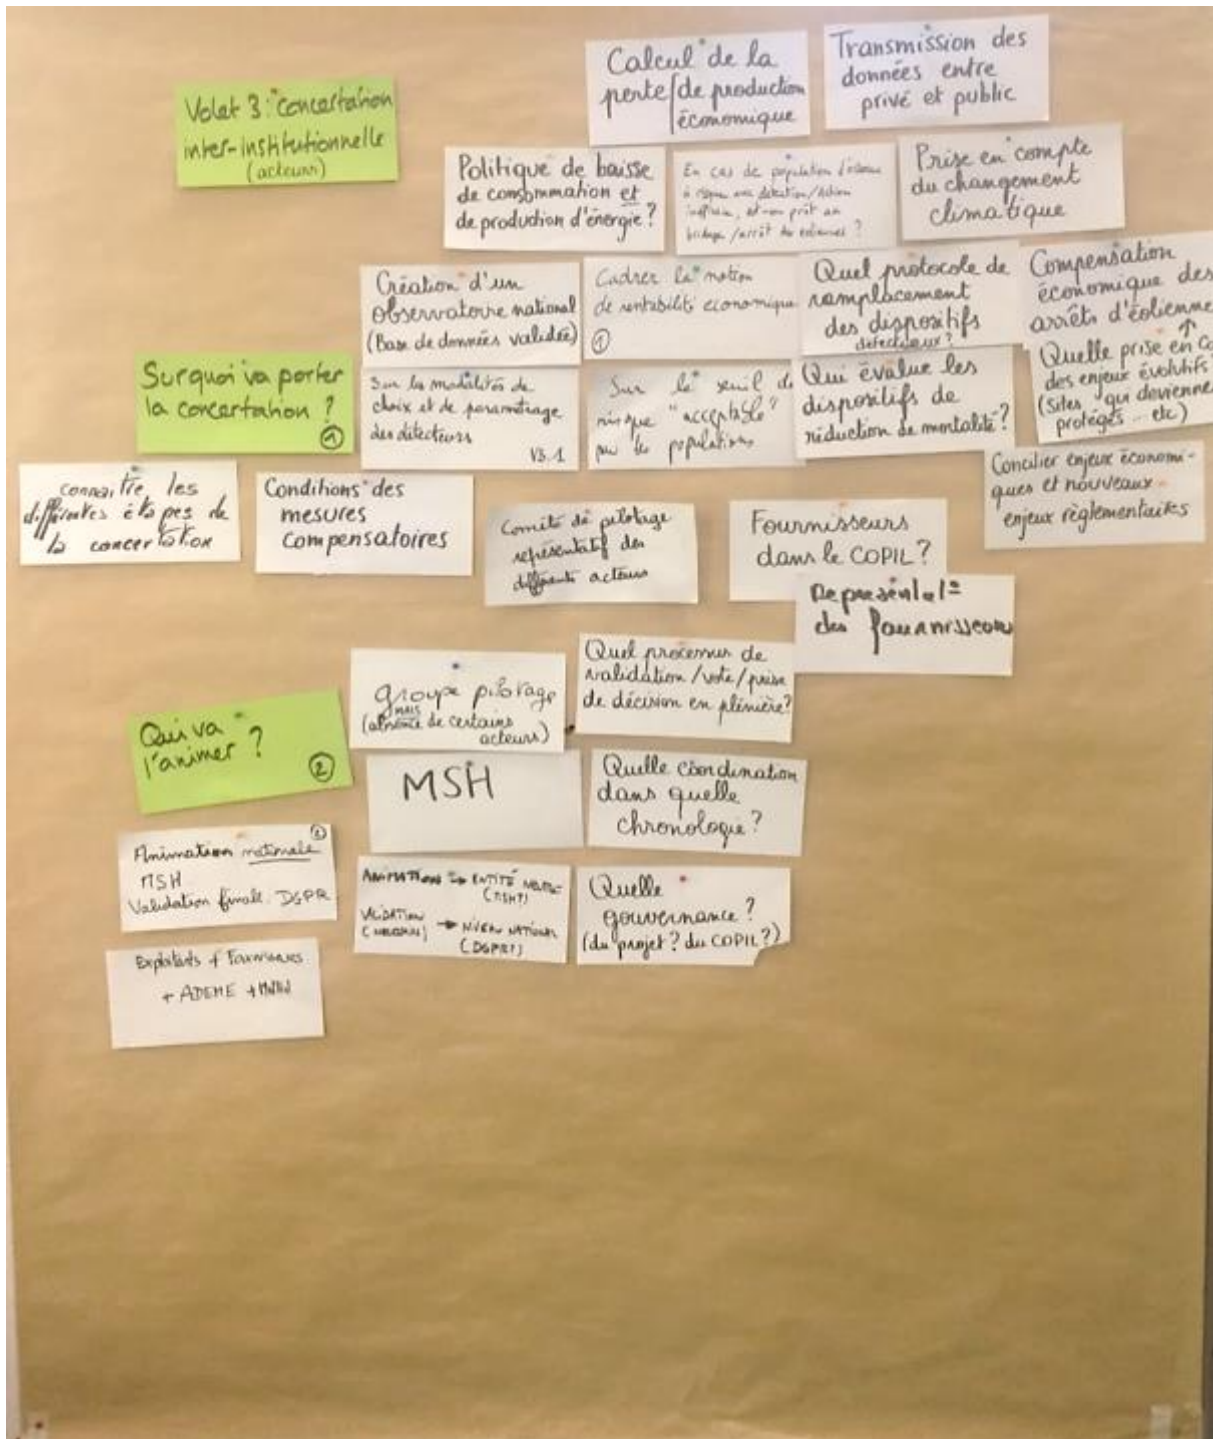 Volet 3 : concertation
inter-institutionnelle
(acteurs)
Calcul de la
perte/de production
économique
Transmission des
données entre
privé et public
Politique de baisse
de consommation et
de production d'énergie ?
En cas de population d'oiseaux
à risque avec détection/
est-on prêt au
bridage/arrêt des éoliennes ?
Prise en compte
du changement
climatique
Création d'un
observatoire national
(Base de données validée)
Cadrer la notion
de rentabilité economique
①
Quel protocole de
remplacement
des dispositifs
défectueux ?
Compensation
économique des
arrêts d'éolienne
Sur quoi va porter
la concertation ?
①
Sur les modalités de
choix et de paramétrage
des détecteurs
V3.1
Sur le seuil de
risque "acceptable"
par les populations
Qui évalue les
dispositifs de
réduction de mortalité ?
Quelle prise en co
des enjeux évolutifs
(Sites qui devienne
protégés ... etc)
connaitre les
différentes étapes de
la concertation
Conditions des
mesures
compensatoires
Comité de pilotage
représentatif des
différents acteurs
Fournisseurs
dans le COPIL ?
Concilier enjeux économi-
ques et nouveaux
enjeux règlementaires
des fournisseurs
Qui va
l'animer ?
②
groupe pilotage
MAIS
(absence de certains
acteurs)
Quel processus de
validation/vote/prise
de décision en plénière ?
MSH
Quelle coordination
dans quelle
chronologie ?
Animation nationale
②
MSH
Validation finale : DGPR
ANIMATION → ENTITÉ NEUTRE
(MSH ?)
VALIDATION → NIVEAU NATIONAL
(DGPR ?)
Quelle
gouvernance ?
(du projet ? du COPIL ?)
Exploitants +
+ ADEME +